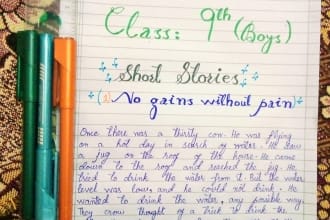 Class: 9th (Boys)
Short Stories
(1) No gains without pain
Once there was a thirsty crow. He was flying
on a hot day in search of water. He saw
a jug on the roof of the house. He came
down to the roof and reached the jug. He
tried to drink the water from it. But the water
level was low, and he could not drink. He
wanted to drink the water, any possible way.
They crow thought of a trick to drink the